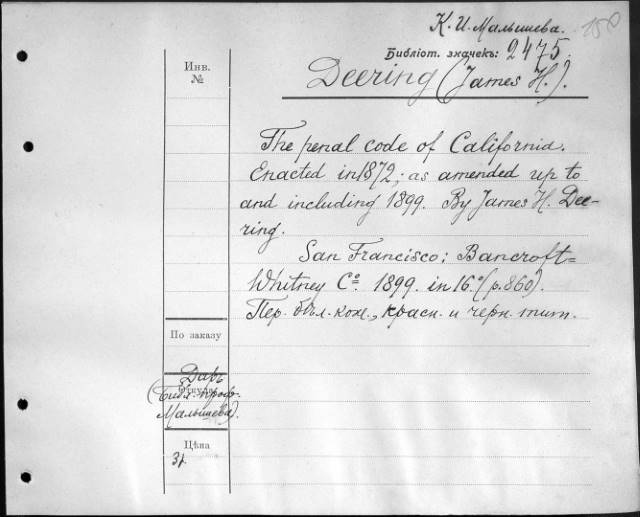 К. И. Малышева.
150
Библіот. значекъ: 2475.
Инв.
№
Deering (James H.).
The penal code of California.
Enacted in 1872; as amended up to
and including 1899. By James H. Dee-
ring.
San Francisco: Bancroft=
Whitney Co. 1899. in 16.º (p. 860).
Пер. бѣл. кож., красн. и черн. тит.
По заказу
Даръ
Откуда
(Библ. проф.
Малышева).
Цѣна
3р